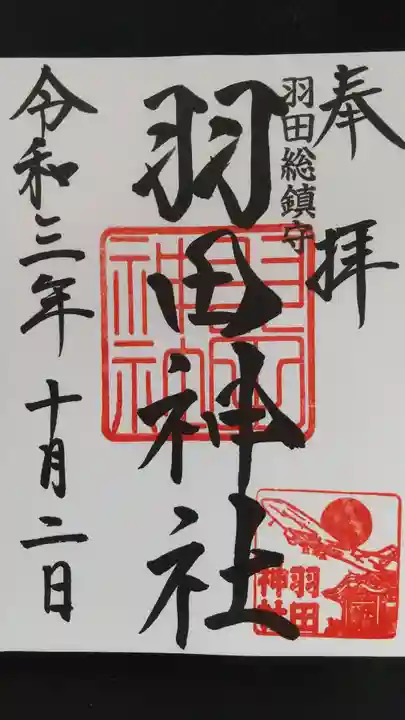 奉拝
羽田総鎮守
羽田神社
羽田神社
令和三年 十月二日
羽田
神社